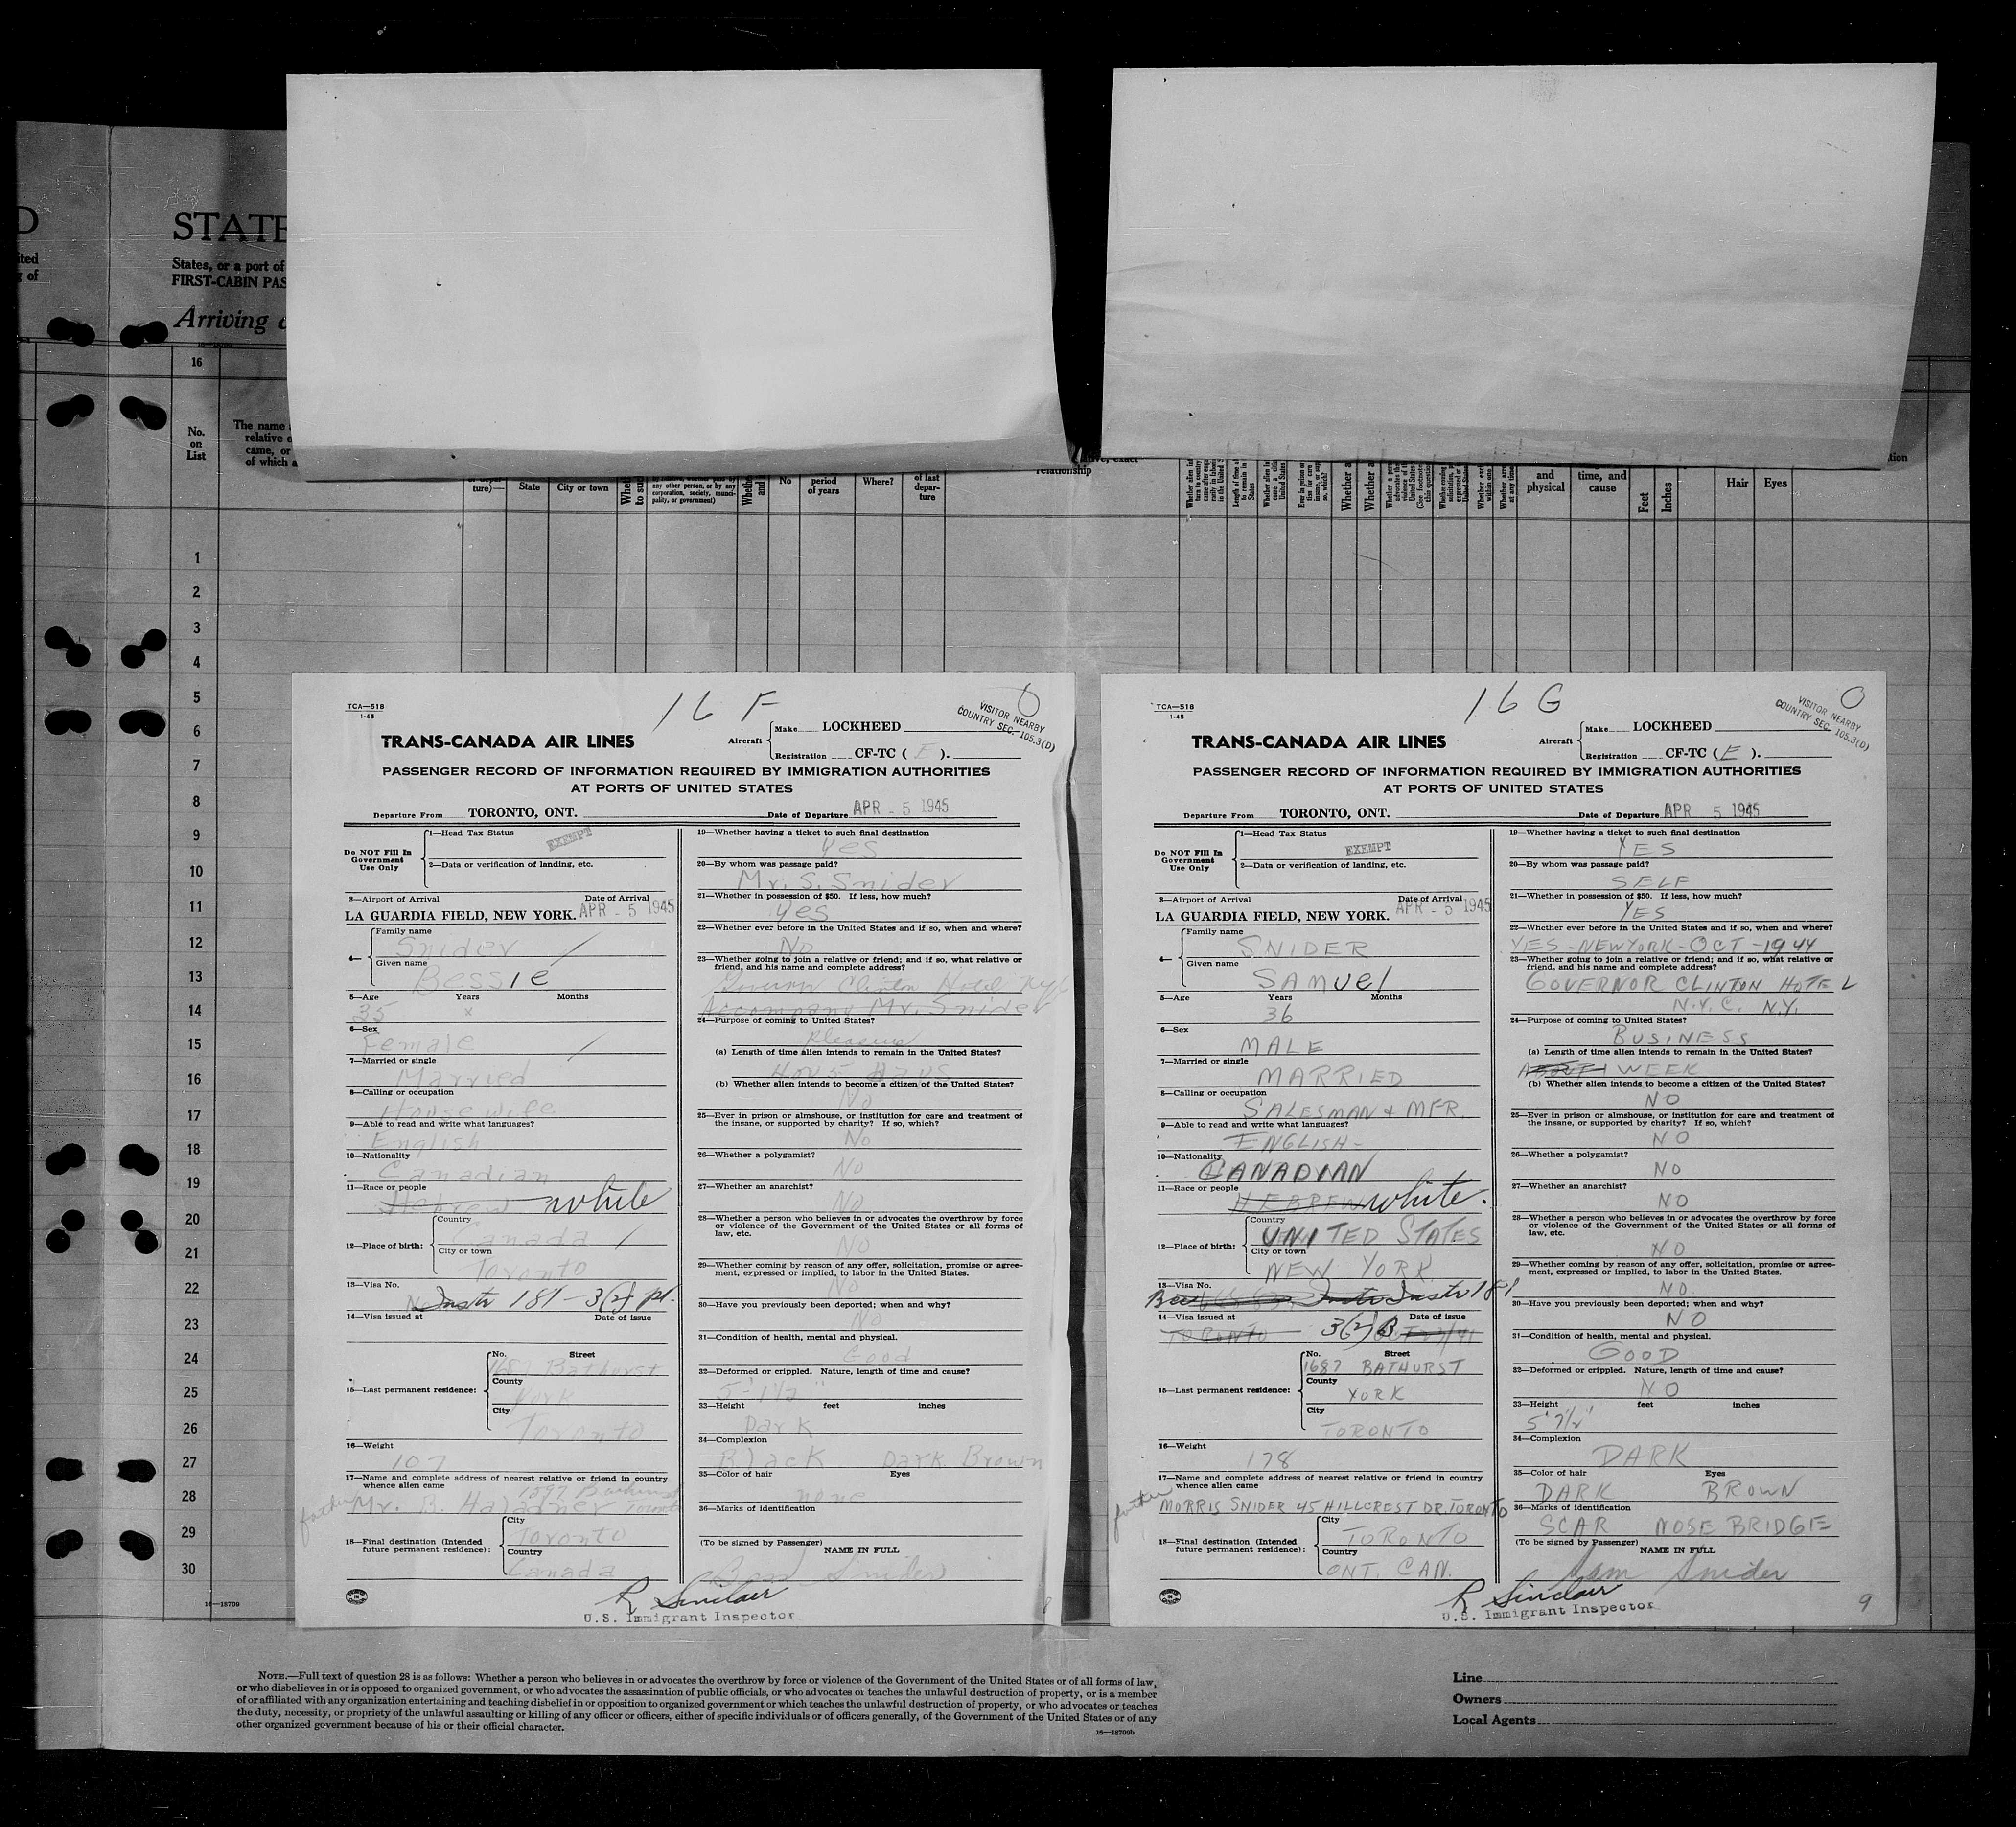 D
ited
g of
STATE
States, or a port of
FIRST-CABIN PAS
Arriving
16
No.
on
List
The name
relative o
came, or
of which a
ture)—
State
City or town
any other person, or by any
corporation, society, munici-
pality, or government)
and
No
period
of years
Where?
of last
depar-
ture
relationship
Whether a
Whether a
and
physical
time, and
cause
Feet
Inches
Hair
Eyes
tion
1
2
3
4
5
6
7
8
9
10
11
12
13
14
15
16
17
18
19
20
21
22
23
24
25
26
27
28
29
30
16—18709
TCA—518
1-45
16 F
VISITOR NEARBY
COUNTRY SEC. 105.3(D)
TRANS-CANADA AIR LINES
Aircraft
Make LOCKHEED
Registration CF-TC ( F ).
PASSENGER RECORD OF INFORMATION REQUIRED BY IMMIGRATION AUTHORITIES
AT PORTS OF UNITED STATES
Departure From TORONTO, ONT. Date of Departure APR - 5 1945
Do NOT Fill In
Government
Use Only
1—Head Tax Status EXEMPT
2—Data or verification of landing, etc.
3—Airport of Arrival Date of Arrival
LA GUARDIA FIELD, NEW YORK. APR - 5 1945
4—
Family name
Snider
Given name
Bessie
5—Age Years Months
35 x
6—Sex
Female
7—Married or single
Married
8—Calling or occupation
House wife
9—Able to read and write what languages?
English
10—Nationality
Canadian
11—Race or people
Hebrew white
12—Place of birth:
Country
Canada
City or town
Toronto
13—Visa No.
Instr 181-3(2) pl.
14—Visa issued at Date of issue
15—Last permanent residence:
No. Street
1687 Bathurst
County
York
City
Toronto
16—Weight
107
17—Name and complete address of nearest relative or friend in country
whence alien came
father Mr. B. Toronto
18—Final destination (Intended
future permanent residence):
City
Toronto
Country
Canada
19—Whether having a ticket to such final destination
Yes
20—By whom was passage paid?
Mr. S. Snider
21—Whether in possession of $50. If less, how much?
Yes
22—Whether ever before in the United States and if so, when and where?
No
23—Whether going to join a relative or friend; and if so, what relative or
friend, and his name and complete address?
Governor Clinton Hotel NYC
Accompany Mr. Snider
24—Purpose of coming to United States?
Pleasure
(a) Length of time alien intends to remain in the United States?
4 or 5 Days
(b) Whether alien intends to become a citizen of the United States?
No
25—Ever in prison or almshouse, or institution for care and treatment of
the insane, or supported by charity? If so, which?
No
26—Whether a polygamist?
No
27—Whether an anarchist?
No
28—Whether a person who believes in or advocates the overthrow by force
or violence of the Government of the United States or all forms of
law, etc.
No
29—Whether coming by reason of any offer, solicitation, promise or agree-
ment, expressed or implied, to labor in the United States.
No
30—Have you previously been deported; when and why?
No
31—Condition of health, mental and physical.
Good
32—Deformed or crippled. Nature, length of time and cause?
5-1½"
33—Height feet inches
Dark
34—Complexion
Black Dark Brown
35—Color of hair Eyes
none
36—Marks of identification
(To be signed by Passenger)
NAME IN FULL
Snider
R Sinclair
U.S. Immigrant Inspector
8
TCA—518
1-45
16 G
VISITOR NEARBY
COUNTRY SEC. 105.3(D)
TRANS-CANADA AIR LINES
Aircraft
Make LOCKHEED
Registration CF-TC ( E ).
PASSENGER RECORD OF INFORMATION REQUIRED BY IMMIGRATION AUTHORITIES
AT PORTS OF UNITED STATES
Departure From TORONTO, ONT. Date of Departure APR 5 1945
Do NOT Fill In
Government
Use Only
1—Head Tax Status
EXEMPT
2—Data or verification of landing, etc.
3—Airport of Arrival Date of Arrival
LA GUARDIA FIELD, NEW YORK. APR - 5 1945
4—
Family name
SNIDER
Given name
SAMUEL
5—Age Years Months
36
6—Sex
MALE
7—Married or single
MARRIED
8—Calling or occupation
SALESMAN & MFR.
9—Able to read and write what languages?
ENGLISH-
10—Nationality
CANADIAN
11—Race or people
HEBREW white.
12—Place of birth:
Country
UNITED STATES
City or town
NEW YORK
13—Visa No.
Instr 181
14—Visa issued at Date of issue
TORONTO 3(2) B
15—Last permanent residence:
No. Street
1687 BATHURST
County
YORK
City
TORONTO
16—Weight
178
17—Name and complete address of nearest relative or friend in country
whence alien came
father MORRIS SNIDER 45 HILLCREST DR. TORONTO
18—Final destination (Intended
future permanent residence):
City
TORONTO
Country
ONT. CAN.
19—Whether having a ticket to such final destination
YES
20—By whom was passage paid?
SELF
21—Whether in possession of $50. If less, how much?
YES
22—Whether ever before in the United States and if so, when and where?
YES-NEW YORK-OCT-1944
23—Whether going to join a relative or friend; and if so, what relative or
friend, and his name and complete address?
GOVERNOR CLINTON HOTEL
N.Y.C. N.Y.
24—Purpose of coming to United States?
BUSINESS
(a) Length of time alien intends to remain in the United States?
ABOUT 1 WEEK
(b) Whether alien intends to become a citizen of the United States?
NO
25—Ever in prison or almshouse, or institution for care and treatment of
the insane, or supported by charity? If so, which?
NO
26—Whether a polygamist?
NO
27—Whether an anarchist?
NO
28—Whether a person who believes in or advocates the overthrow by force
or violence of the Government of the United States or all forms of
law, etc.
NO
29—Whether coming by reason of any offer, solicitation, promise or agree-
ment, expressed or implied, to labor in the United States.
NO
30—Have you previously been deported; when and why?
NO
31—Condition of health, mental and physical.
GOOD
32—Deformed or crippled. Nature, length of time and cause?
NO
33—Height feet inches
5' 7½"
34—Complexion
DARK
35—Color of hair Eyes
DARK BROWN
36—Marks of identification
SCAR NOSE BRIDGE
(To be signed by Passenger)
NAME IN FULL
Sam Snider
R Sinclair
U.S. Immigrant Inspector
9
NOTE.—Full text of question 28 is as follows: Whether a person who believes in or advocates the overthrow by force or violence of the Government of the United States or of all forms of law,
or who disbelieves in or is opposed to organized government, or who advocates the assassination of public officials, or who advocates or teaches the unlawful destruction of property, or is a member
of or affiliated with any organization entertaining and teaching disbelief in or opposition to organized government or which teaches the unlawful destruction of property, or who advocates or teaches
the duty, necessity, or propriety of the unlawful assaulting or killing of any officer or officers, either of specific individuals or of officers generally, of the Government of the United States or of any
other organized government because of his or their official character.
16—18709b
Line
Owners
Local Agents